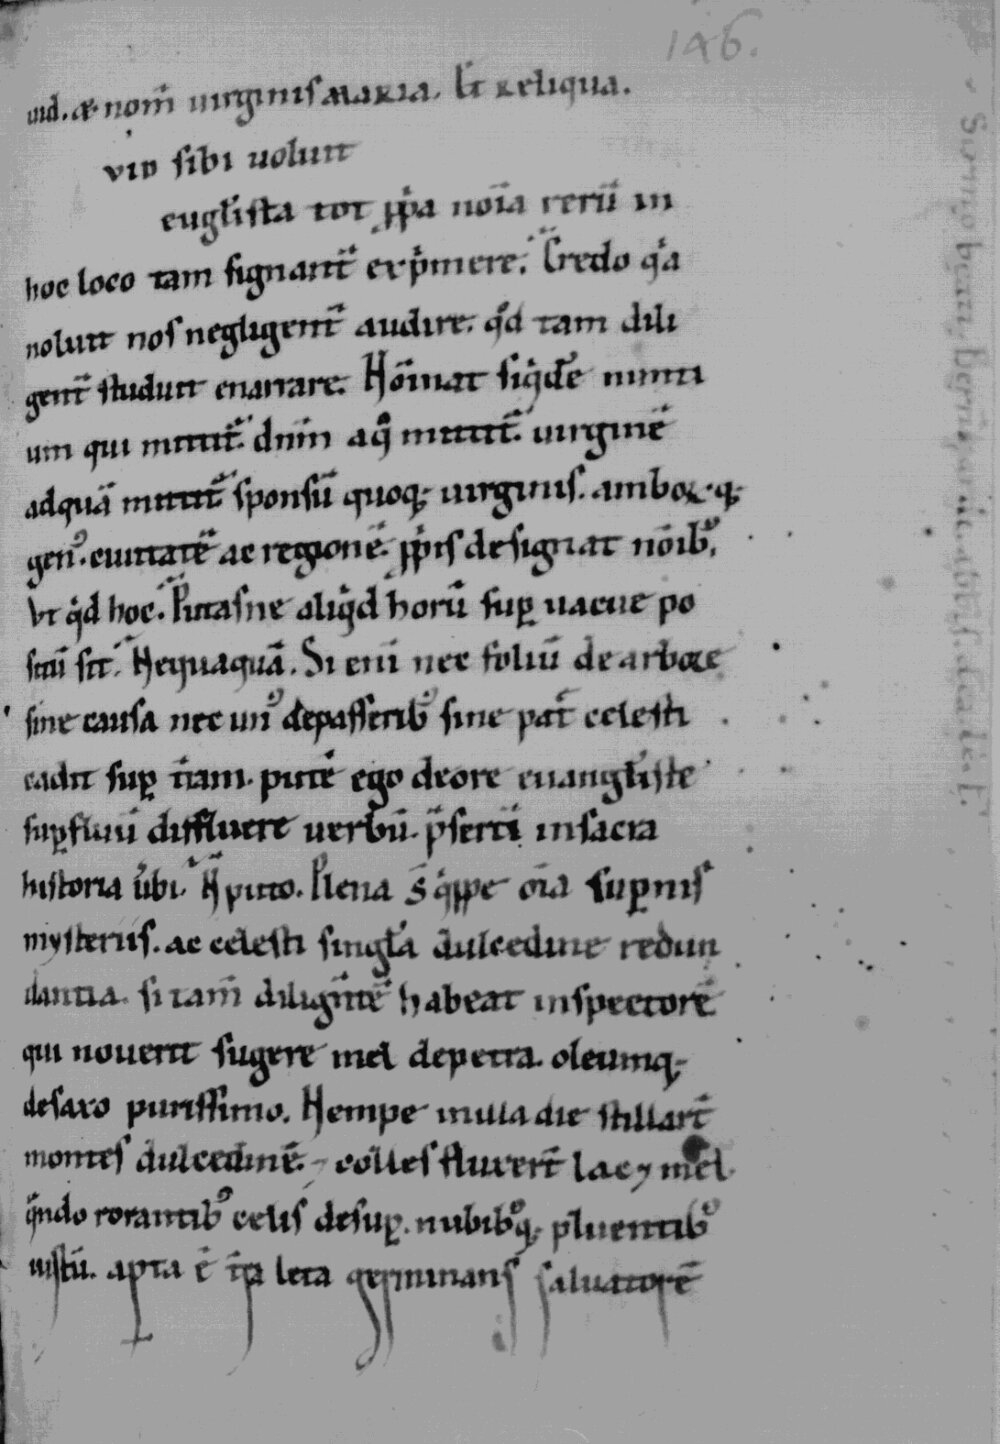 146.
uid. & nom̄ uirginis MARIA. Et reliqua.
VID sibi uoluit
euḡlista tot p̄pa noīa rerū in
hoc loco tam signant̄ exp̄mere. Credo q̄a
noluit nos negligent̄ audire. q̄d tam dili
gent̄ studuit enarrare. Nōīnat siq̄dē nunti
um qui mittit̄. dn̄m a q̄ mittit̄. uirginē
adquā mittit̄ sponsū quoq; uirginis. amboꝝ q;
gen᾽. ciuitatē ac regionē. p̄p̄is designat nōīb᾽.
Vt q̄d hoc. Putasne aliq̄d horū suꝑ uacue po
sitū sit. Nequaquā. Si enī nec foliū de arbore
sine causa nec un᾽ depasserib᾽ sine pat̄ celesti
cadit suꝑ t̄ram. putē ego deore euangl̄iste
suꝑfluū diffluere uerbū. p̄sertī insacra
historia ūbi. N̄ puto. Plena s̄ q̄ppe oīa suꝑnis
mysteriis. ac celesti singl̄a dulcedine redun
dantia. si tam̄ diligētē habeat inspectorē
qui nouerit sugere mel depetra. oleumq;
desaxo purissimo. Nempe in illa die stillart̄
montes dulcedinē. ⁊ colles fluxert̄ lac ⁊ mel.
q̄ndo rorantib᾽ celis desuꝑ. nubib᾽q; pluentib᾽
iustū. apta ē t̄ra leta germinans saluatorē